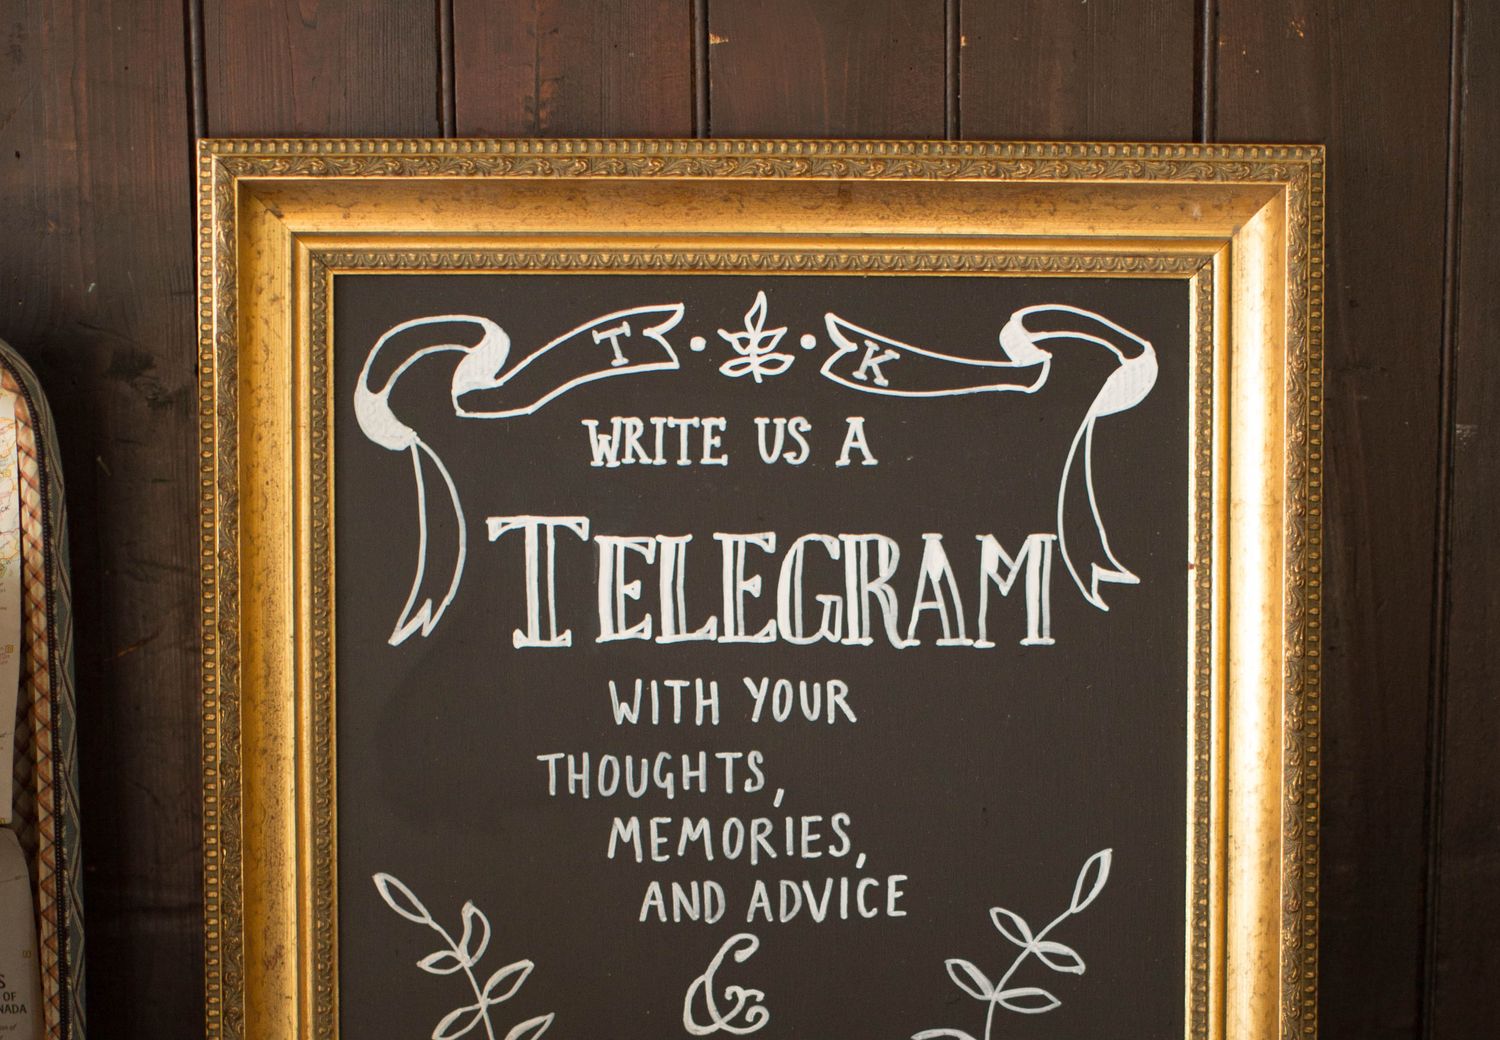 T • K
WRITE US A
TELEGRAM
WITH YOUR
THOUGHTS,
MEMORIES,
AND ADVICE
&
OF
NADA